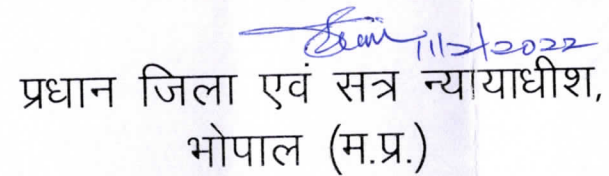 11/2/2022
प्रधान जिला एवं सत्र न्यायाधीश,
भोपाल (म.प्र.)